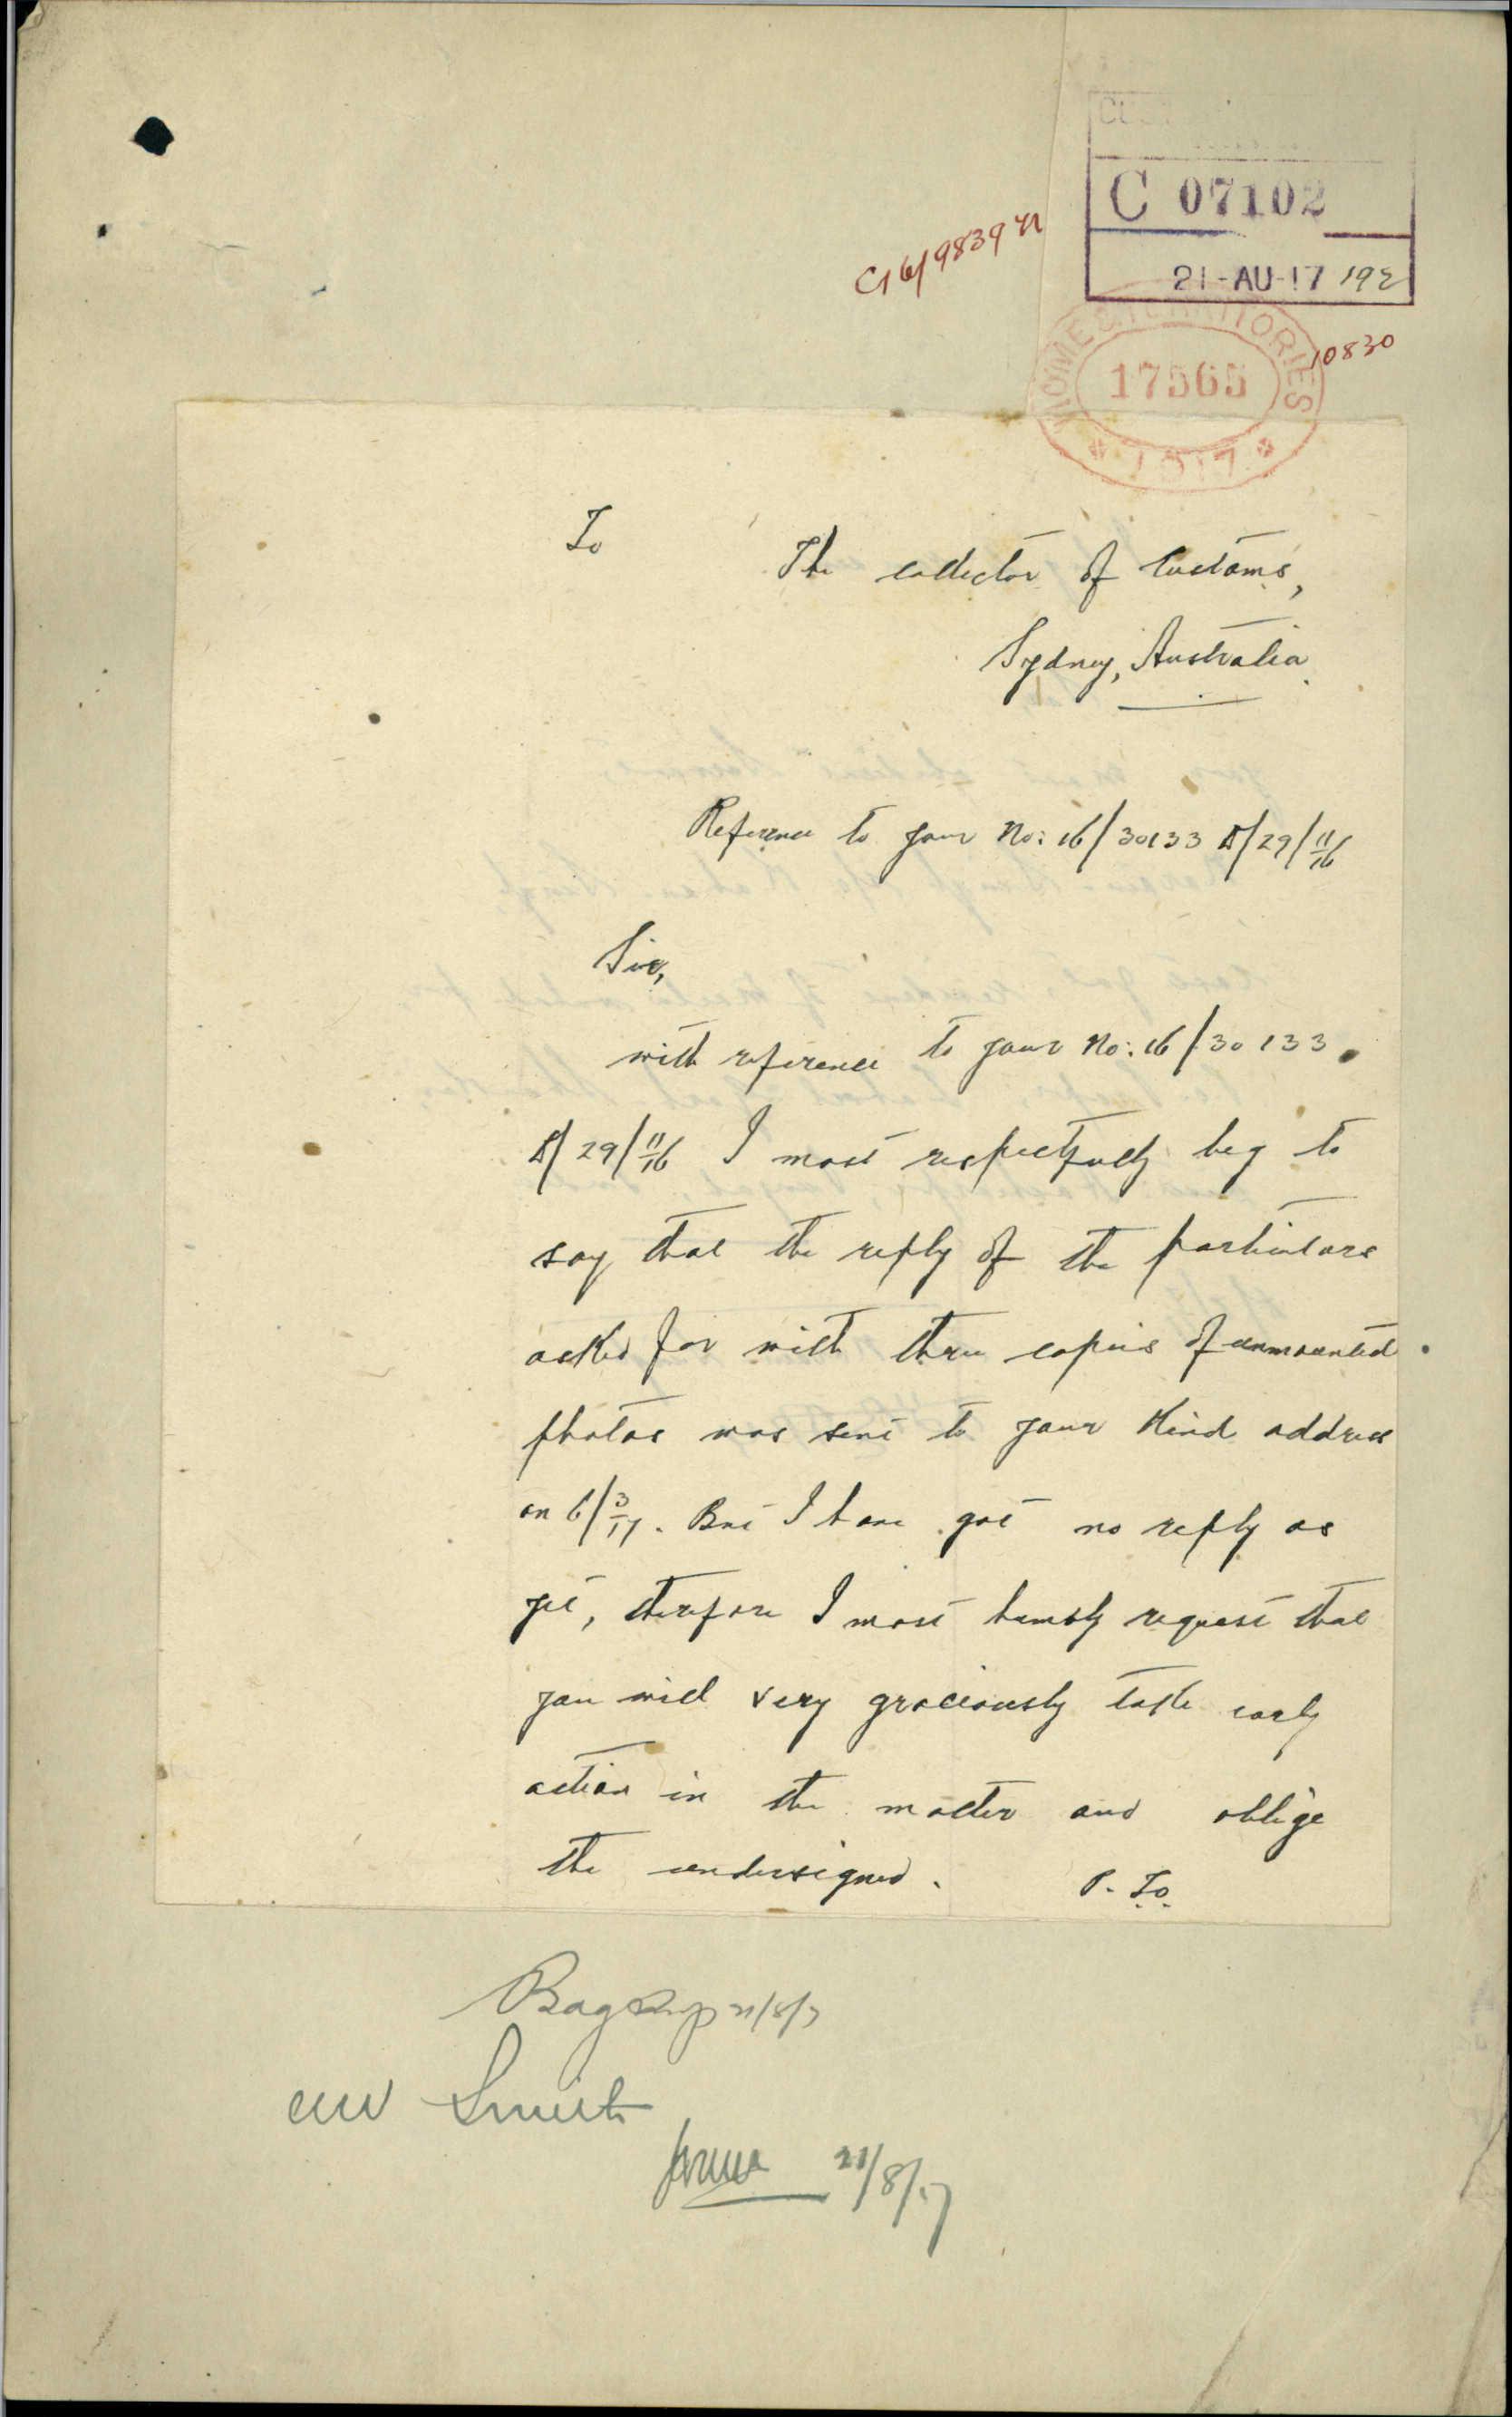 C 07102
21-AU-17 192
C16/9839
10830
HOME & TERRITORIES
17565
* 1917 *
To
The collector of Customs,
Sydney, Australia.
Reference to your No: 16/30133 D/29/11/16
Sir,
with reference to your No: 16/30133.
D/29/11/16 I most respectfully beg to
say that the reply of the particulars
asked for with three copies of unmounted
photos was sent to your kind address
on 6/3/17. But I have got no reply as
yet, therefore I most humbly request that
you will very graciously take early
action in the matter and oblige
the undersigned. P. To.
21/8/7
Smith
21/8/17